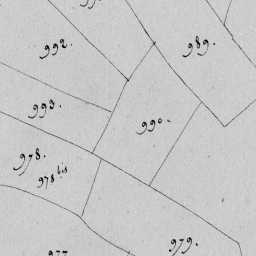 992.
989.
993.
990.
978.
978 bis
979.